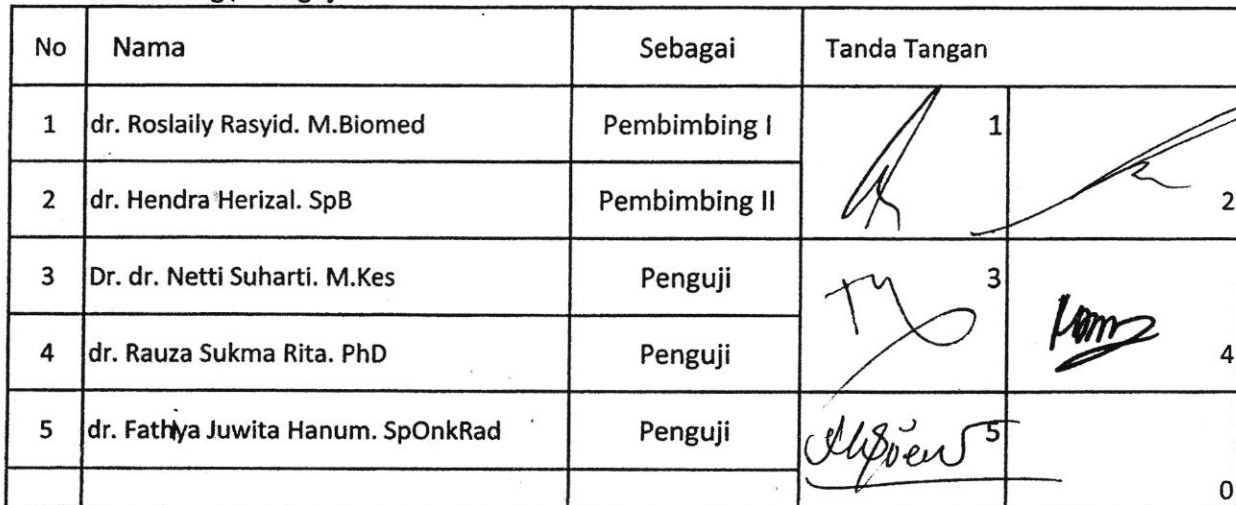 No Nama Sebagai Tanda Tangan
1 dr. Roslaily Rasyid. M.Biomed Pembimbing I 1
2 dr. Hendra Herizal. SpB Pembimbing II 2
3 Dr. dr. Netti Suharti. M.Kes Penguji 3
4 dr. Rauza Sukma Rita. PhD Penguji 4
5 dr. Fathya Juwita Hanum. SpOnkRad Penguji 5
0